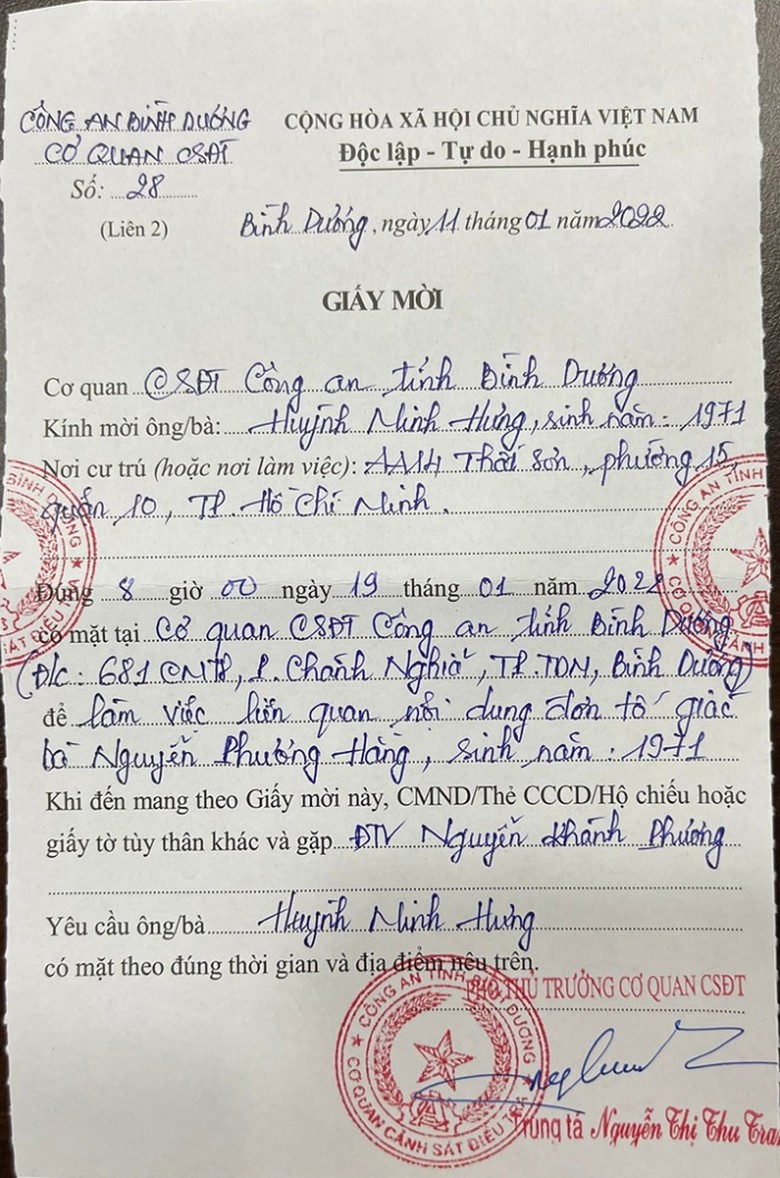 CÔNG AN BÌNH DƯƠNG
CƠ QUAN CSĐT
Số: 28
(Liên 2)
CỘNG HÒA XÃ HỘI CHỦ NGHĨA VIỆT NAM
Độc lập - Tự do - Hạnh phúc
Bình Dương, ngày 11 tháng 01 năm 2022
GIẤY MỜI
Cơ quan CSĐT Công an tỉnh Bình Dương
Kính mời ông/bà: Huỳnh Minh Hưng, sinh năm: 1971
Nơi cư trú (hoặc nơi làm việc): AA14 Thất Sơn, phường 15,
quận 10, TP. Hồ Chí Minh.
Đúng 8 giờ 00 ngày 19 tháng 01 năm 2022
có mặt tại Cơ quan CSĐT Công an tỉnh Bình Dương
(Đ/c: 681 CMT8, P. Chánh Nghĩa, TP. TDM, Bình Dương)
để làm việc liên quan nội dung đơn tố giác
bà Nguyễn Phương Hằng, sinh năm: 1971
Khi đến mang theo Giấy mời này, CMND/Thẻ CCCD/Hộ chiếu hoặc
giấy tờ tùy thân khác và gặp ĐTV Nguyễn Khánh Phương
Yêu cầu ông/bà Huỳnh Minh Hưng
có mặt theo đúng thời gian và địa điểm nêu trên.
PHÓ THỦ TRƯỞNG CƠ QUAN CSĐT
CÔNG AN TỈNH BÌNH DƯƠNG
CƠ QUAN CẢNH SÁT ĐIỀU TRA
Trung tá Nguyễn Thị Thu